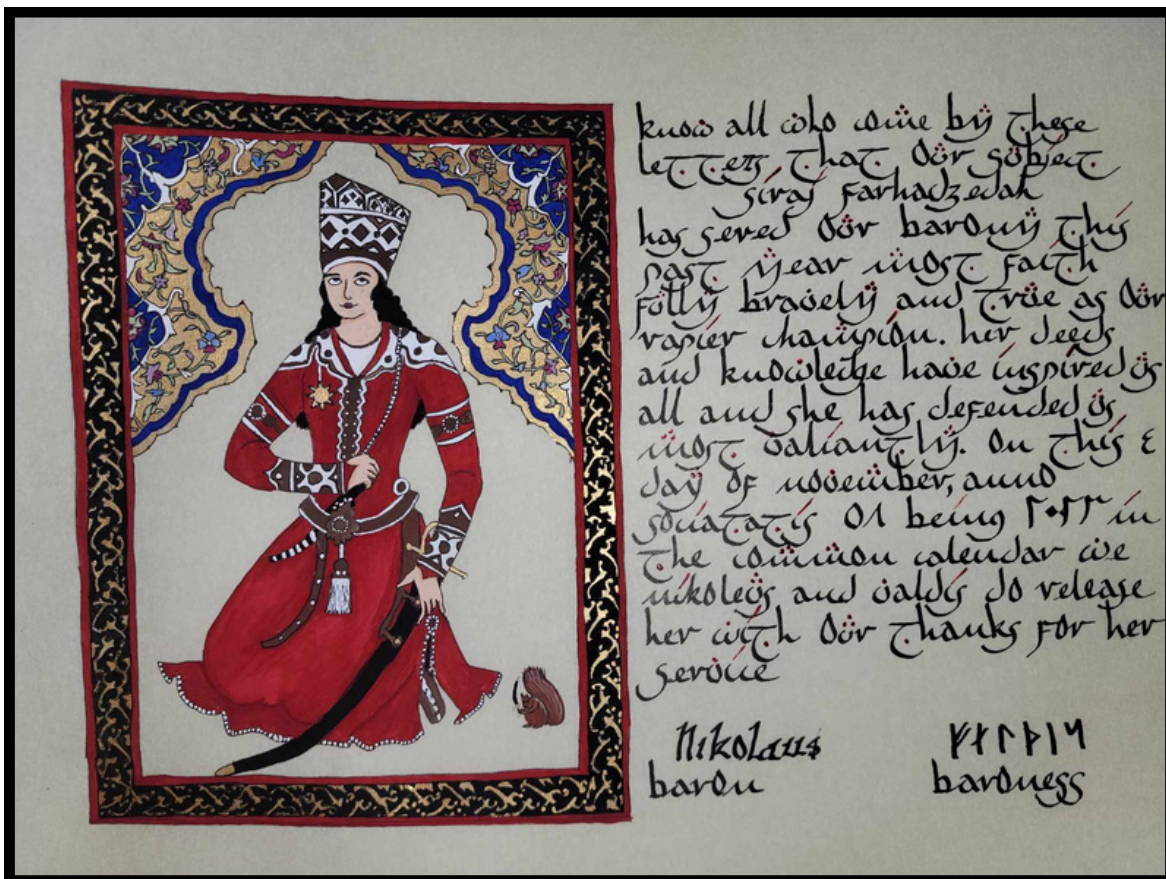 know all who come by these
letters that Our subject
siraj farhadzedah
has sered Our barony this
past year most faith
fully bravely and true as Our
rapier champion. her deeds
and knowledge have inspired us
all and she has defended us
most valiantly. On this ٤
day of november, anno
societatis ٥٨ being ٢٠٢٣ in
the common calendar we
nikoleus and valdis do release
her with Our thanks for her
service
Nikolaus ᚠᛆᛚᚦᛁᛋ
baron baroness